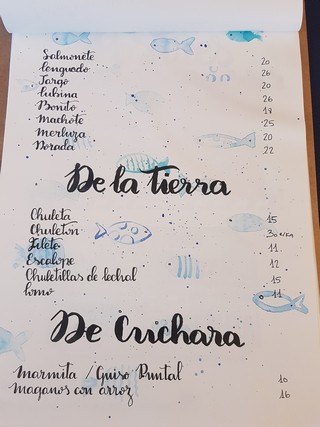 Salmonete 20
Lenguado 26
Jargo 20
Lubina 26
Bonito 18
Machote 25
Merluza 20
Dorada 22
De la Tierra
Chuleta 15
Chuletón 30 €/Kg
Filete 11
Escalope 12
Chuletillas de lechal 15
Lomo 11
De Cuchara
Marmita / Guiso Puntal 10
Maganos con arroz 16